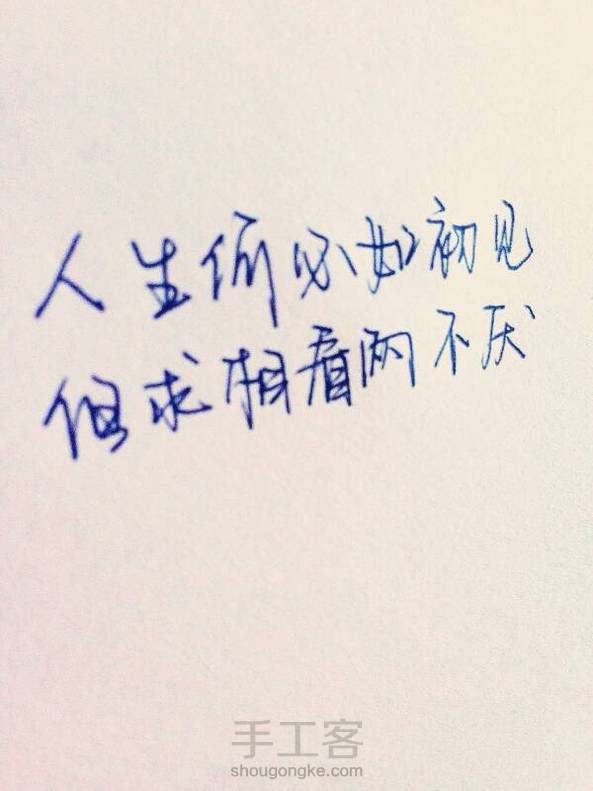 人生何必如初见
但求相看两不厌
手工客
shougongke.com